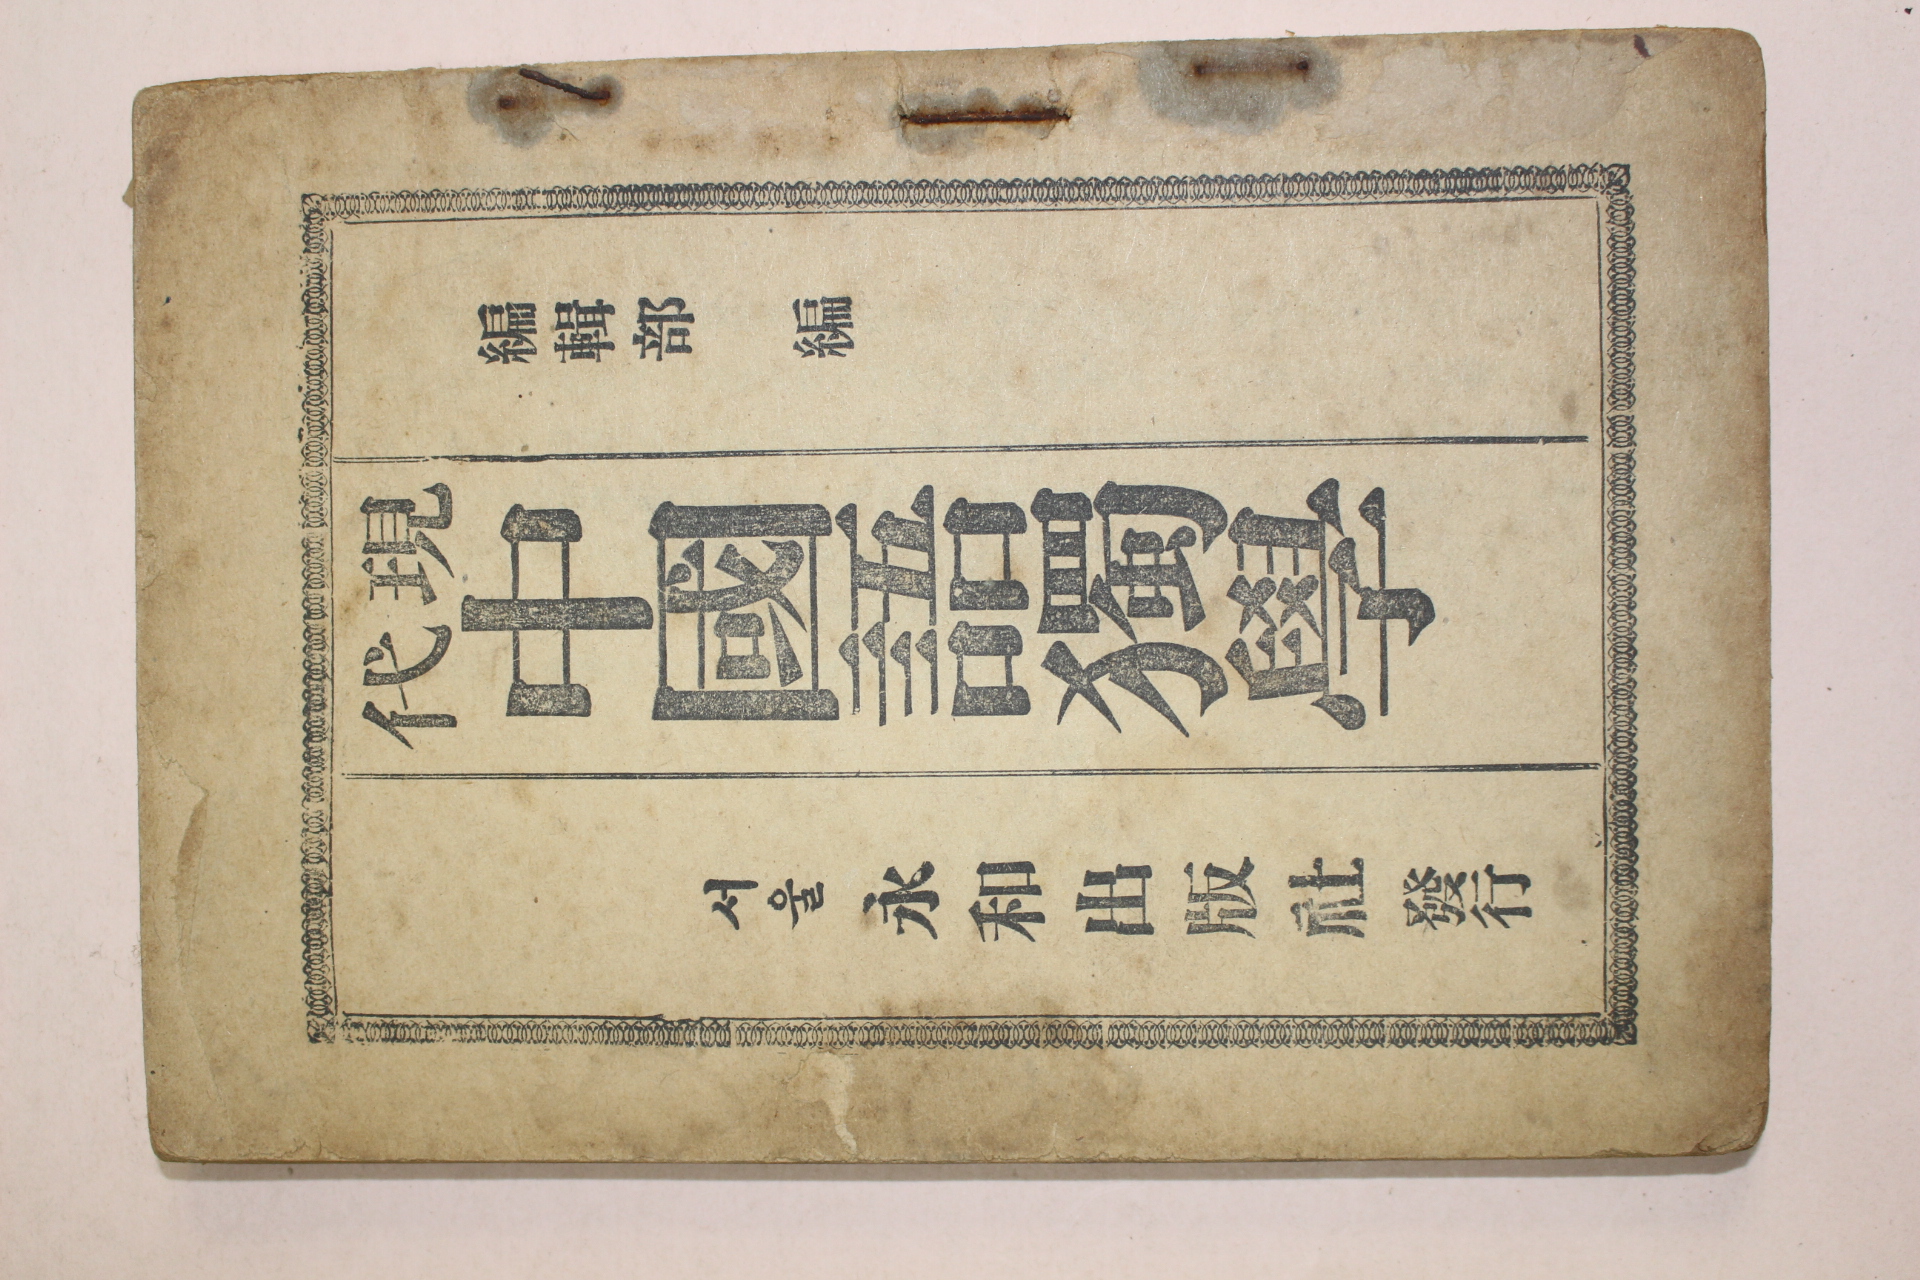 編輯部 編
現代
中國語獨學
서울 永和出版社 發行